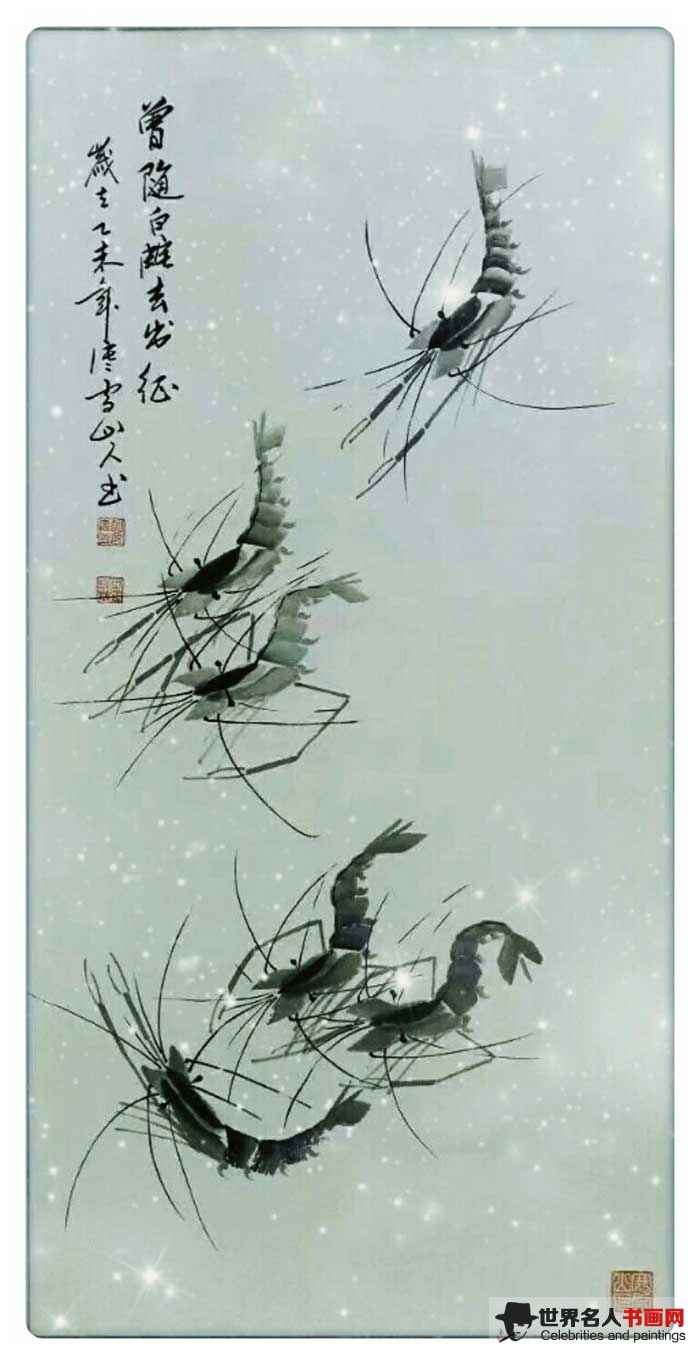 曾隨白龍去出征
歲在乙未年雪山人
世界名人书画网
Celebrities and paintings